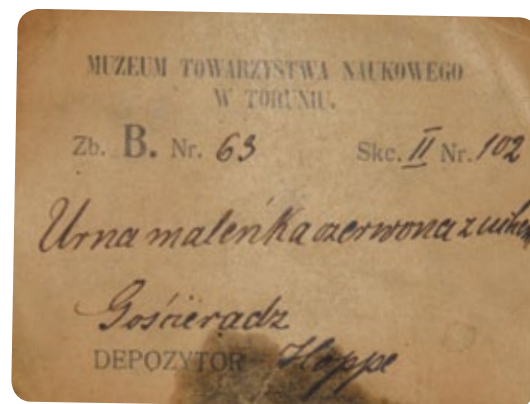 MUZEUM TOWARZYSTWA NAUKOWEGO
W TORUNIU.
Zb. B. Nr. 63 Skc. II Nr. 102
Urna maleńka czerwona z
Gościeradz
DEPOZYTOR Hoppe